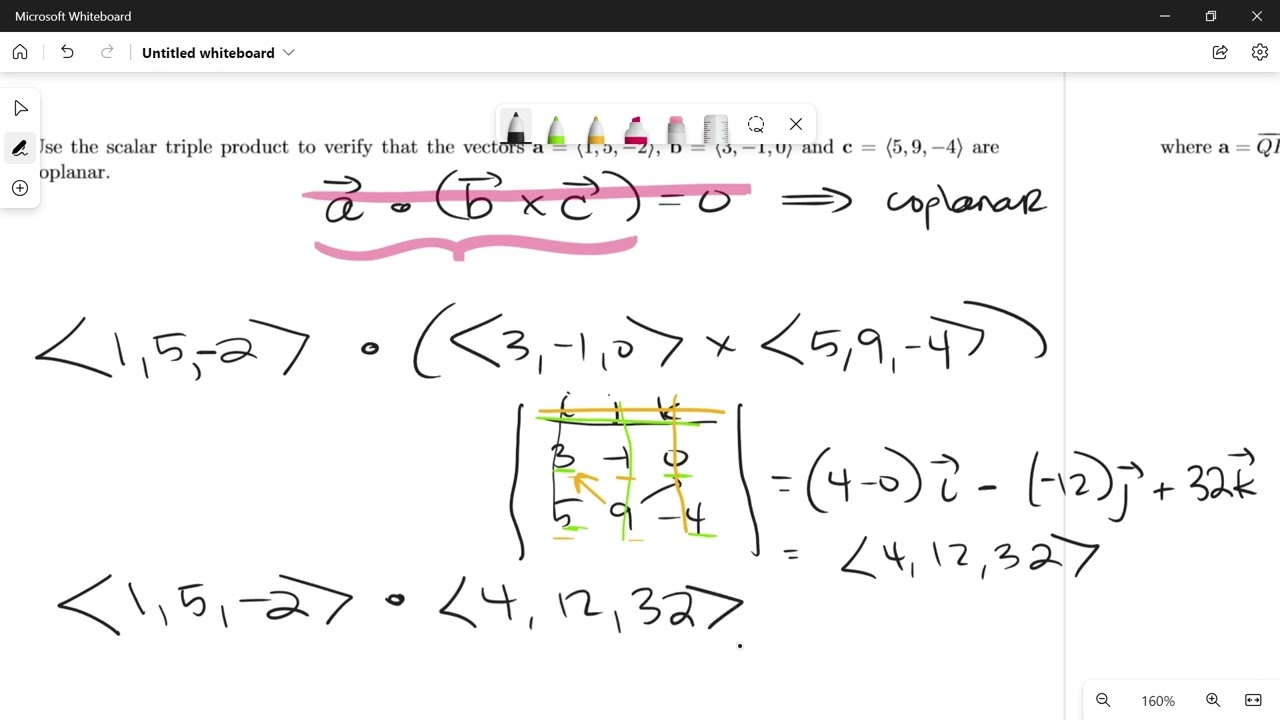 Microsoft Whiteboard
Untitled whiteboard
Use the scalar triple product to verify that the vectors a = ⟨1, 5, −2⟩, b = ⟨3, −1, 0⟩ and c = ⟨5, 9, −4⟩ are
where a =
oplanar.
a⃗ • (b⃗ × c⃗) = 0 ⟹ coplanar
<1, 5, -2> • (<3, -1, 0> × <5, 9, -4>)
i j k
3 -1 0
= (4-0)i⃗ - (-12)j⃗ + 32k⃗
5 9 -4
= <4, 12, 32>
<1, 5, -2> • <4, 12, 32>
160%